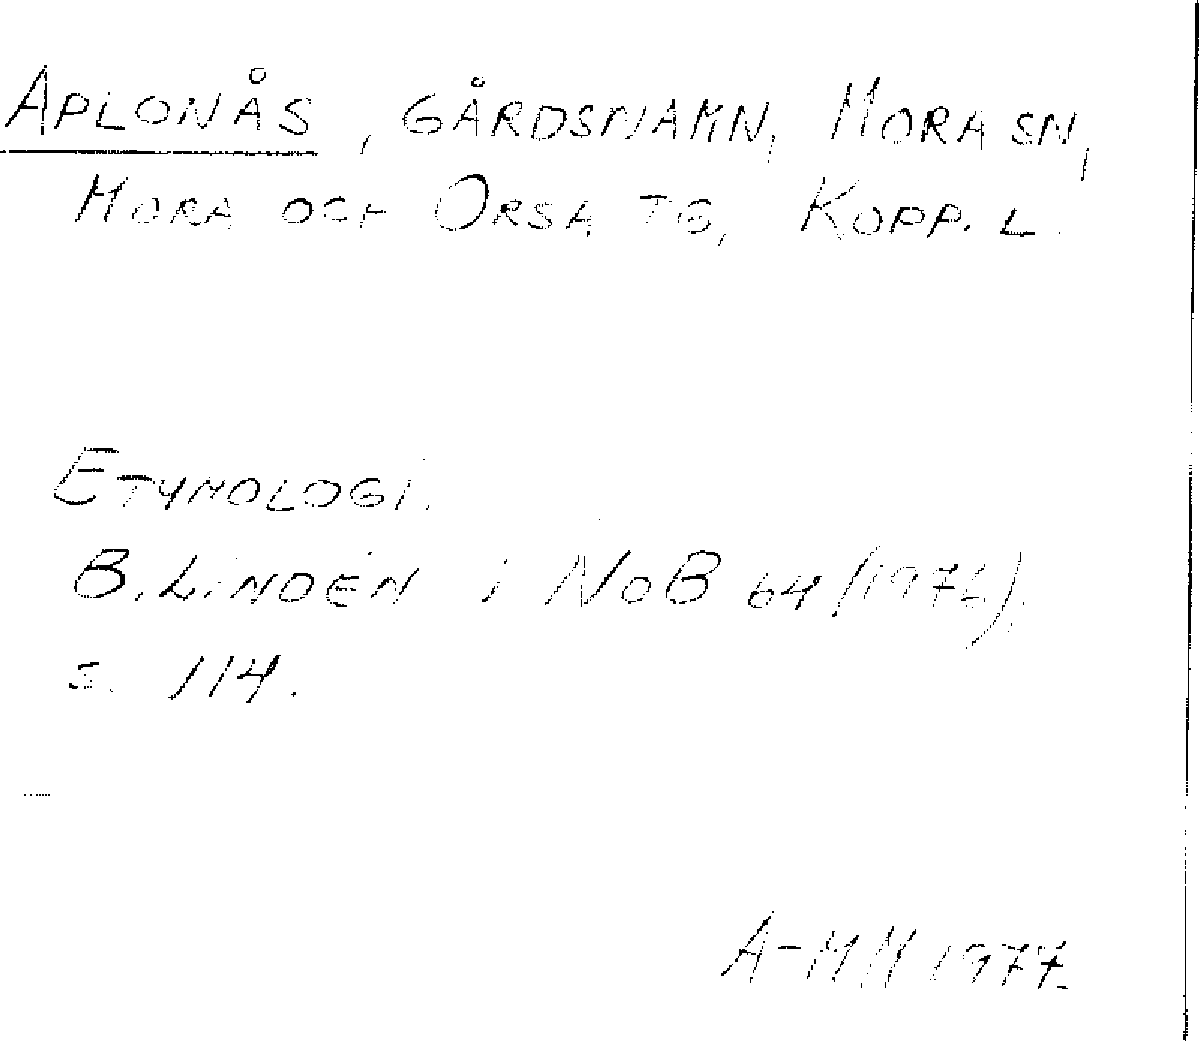 APLONÅS, GÅRDSNAMN, MORA SN,
MORA OCH ORSA TG, KOPP. L.
ETYMOLOGI.
B. LINDÉN i NoB 64 (1976),
s. 114.
A-MH 1977.